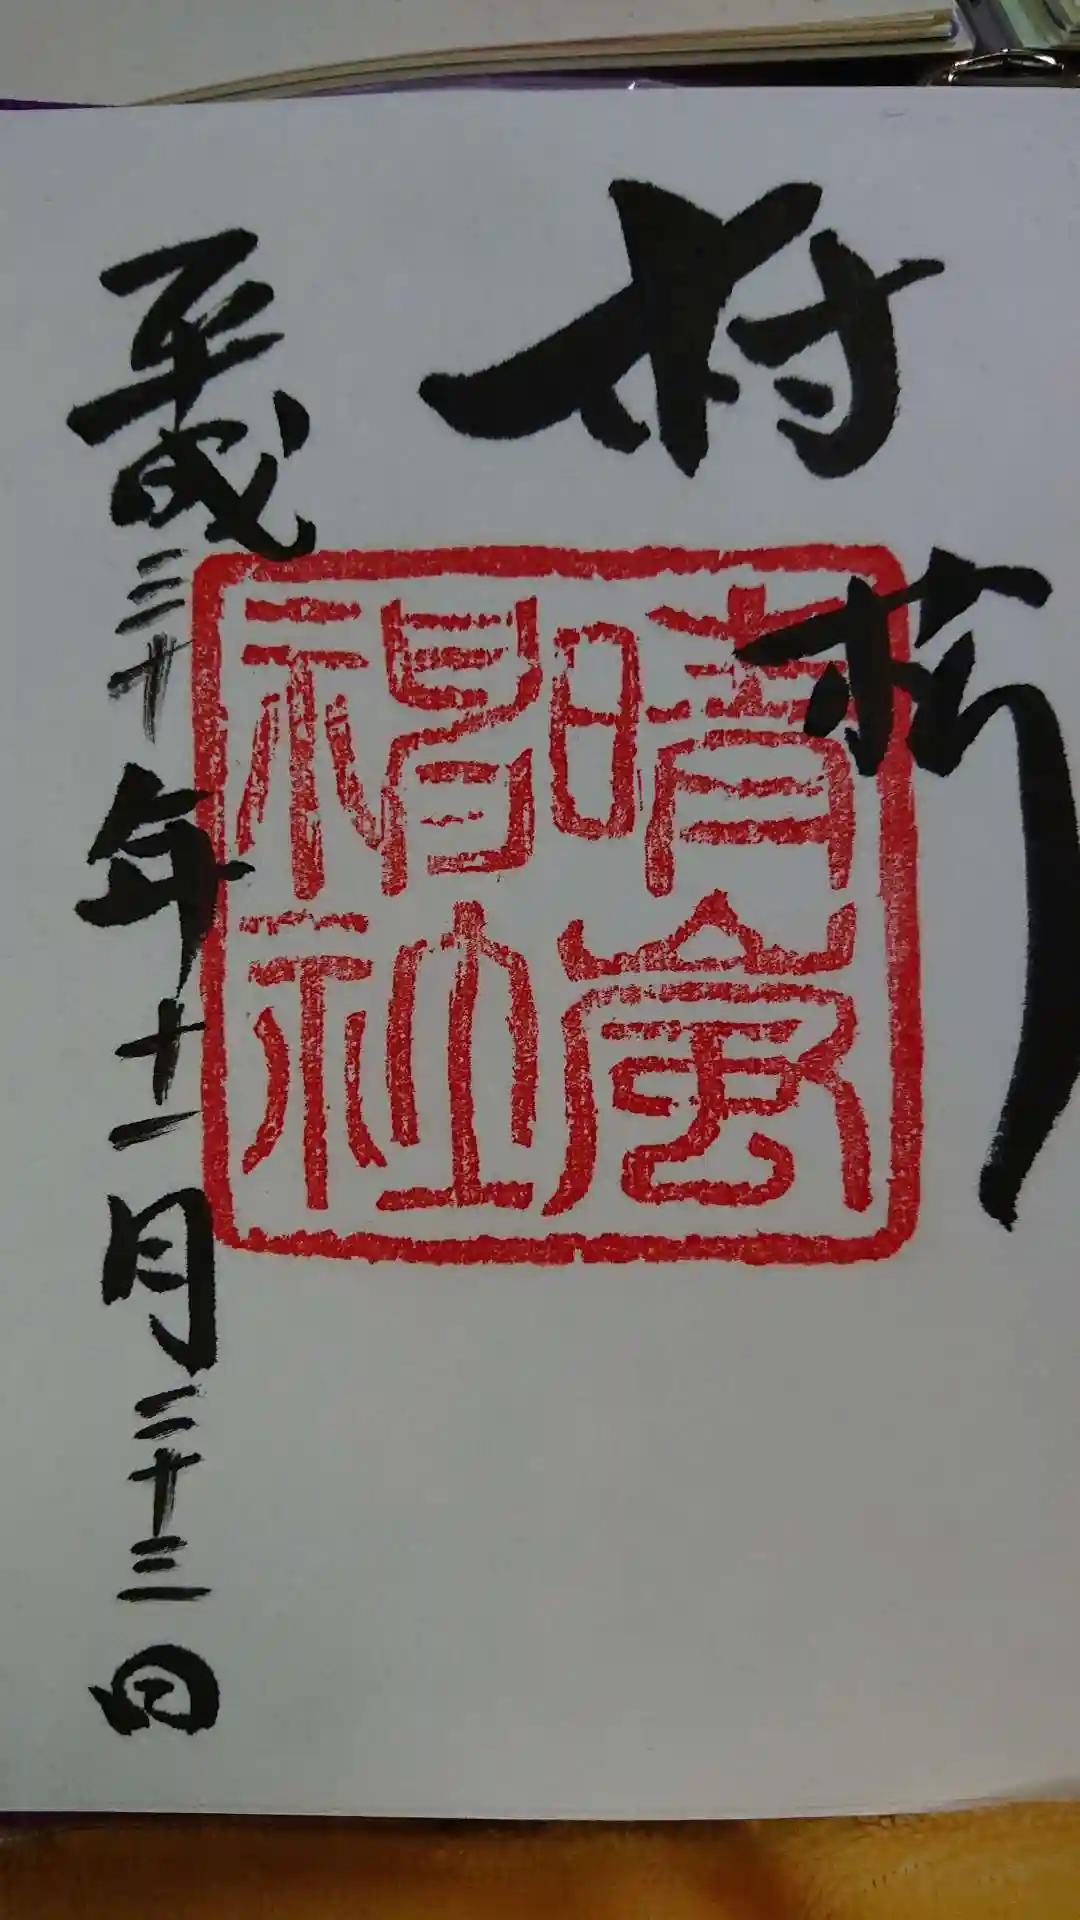 晴嵐
神社
平成三十年十一月二十三日